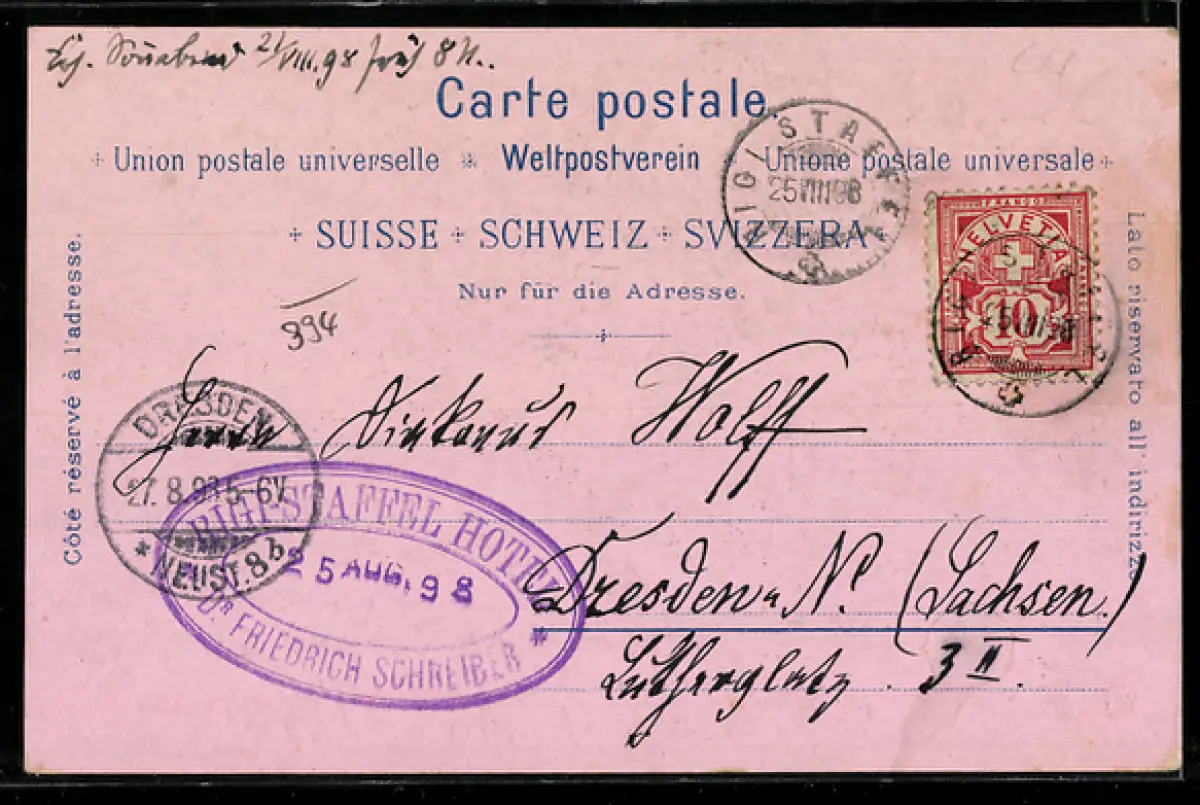 Sonnabend 27/VIII.98 früh 8 U..
Carte postale.
Union postale universelle * Weltpostverein Unione postale universale
SUISSE + SCHWEIZ + SVIZZERA
Nur für die Adresse.
Côté réservé à l'adresse.
Lato riservato all' indirizzo.
RIGI STAFFEL
25 VIII 98
FRANCO
HELVETIA
10
RIGI STAFFEL
25 VIII 98
394
DRESDEN
27.8.98 5-6V.
* NEUST. 8b.
Herrn Diakonus Wolff
RIGI-STAFFEL HOTEL
25 AUG. 98
Dr. FRIEDRICH SCHREIBER *
Dresden-N. (Sachsen.)
Lutherplatz. 3 II.